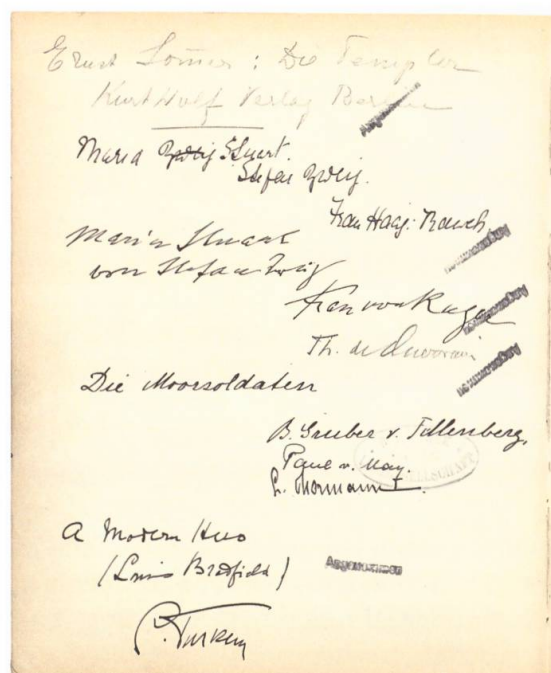 Ernst Sommer : Die Templer
Kurt Wolf Verlag Berlin
Angenommen
Maria Zweig Stuart.
Stefan Zweig.
Frau Haag-Rausch.
Maria Stuart
von Stefan Zweig
Frau von
Th. de
Die Moorsoldaten
B. Gruber v. Tillenberg,
Paul v. May.
L. Mormann
A Modern Hero
(Louis Bromfield)
Angenommen